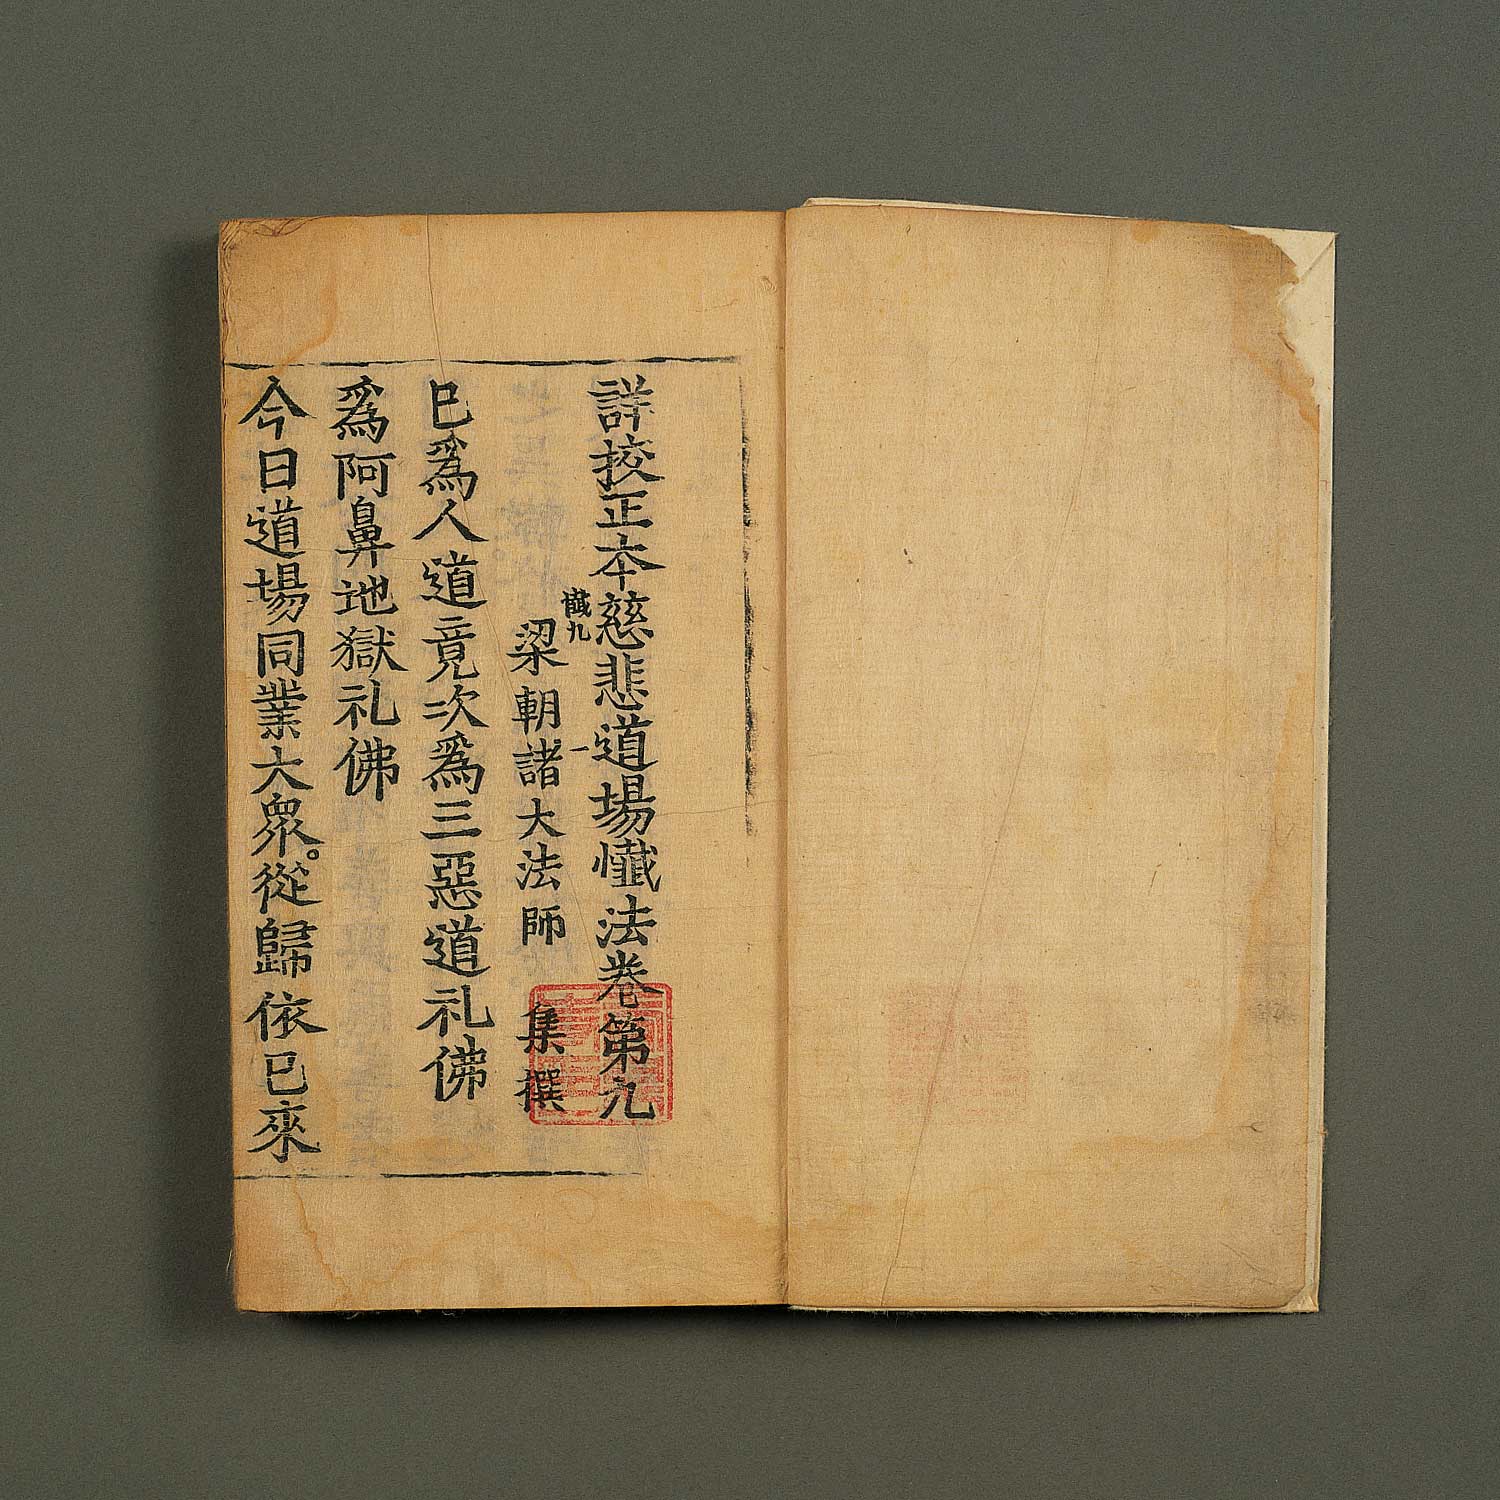 詳挍正本慈悲道場懺法卷第九
懺九
一
梁朝諸大法師集撰
巳爲人道竟次爲三惡道礼佛
爲阿鼻地獄礼佛
今日道場同業大衆。從歸依巳來